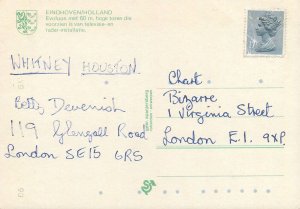 EINDHOVEN/HOLLAND
Evoluon met 60 m. hoge toren die
voorzien is van televisie- en
radar-installaties.
WHITNEY HOUSTON
Betty Devenish
119 Glengall Road
London SE15 6RS
Chart
Bizarre
1 Virginia Street
London E.1. 9XP.